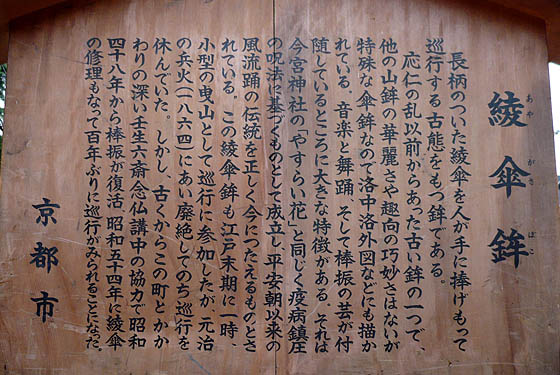 綾傘鉾
あやがさほこ
長柄のついた綾傘を人が手に捧げもって
巡行する古態をもつ鉾である。
応仁の乱以前からあった古い鉾の一つで、
他の山鉾の華麗さや趣向の巧妙さはないが
特殊な傘鉾なので洛中洛外図などにも描か
れている。音楽と舞踊、そして棒振の芸が付
随しているところに大きな特徴がある。それは
今宮神社の「やすらい花」と同じく疫病鎮圧
の呪法に基づくものとして成立し、平安朝以来の
風流踊の伝統を正しく今につたえるものとさ
れている。この綾傘鉾も江戸末期に一時、
小型の曳山として巡行に参加したが、元治
の兵火(一八六四)にあい廃絶してのち巡行を
休んでいた。しかし、古くからこの町とかか
わりの深い壬生六斎念仏講中の協力で昭和
四十八年から棒振が復活、昭和五十四年に綾傘
の修理もなって百年ぶりに巡行がみられることになった。
京都市